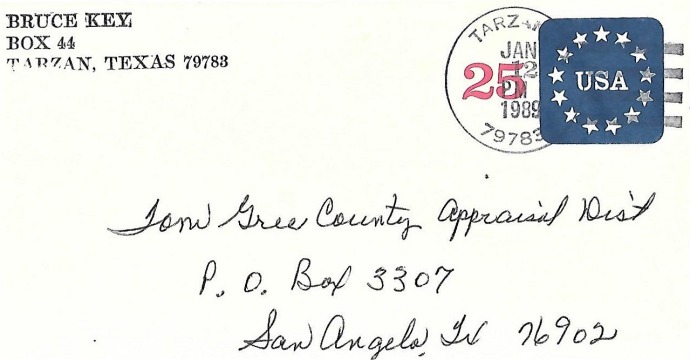 BRUCE KEY
BOX 44
TARZAN, TEXAS 79783
TARZAN
JAN
12
PM
1989
79783
25
USA
Tom Gree County Appraisal Dist
P. O. Box 3307
San Angelo, TX 76902